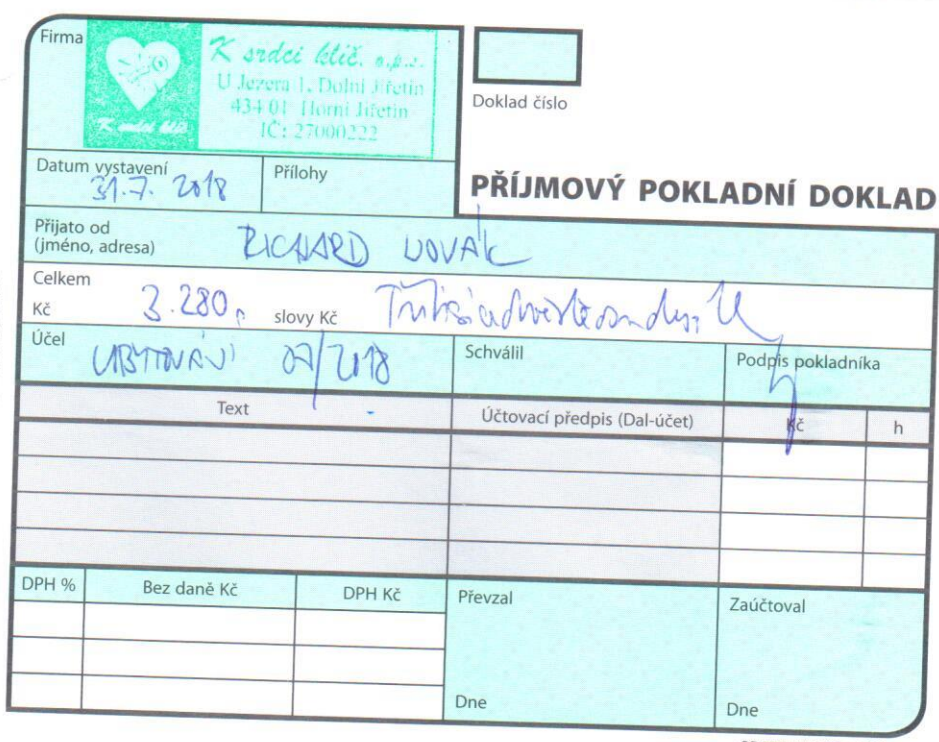 Firma
K srdci klíč. o.p.s.
U Jezera 1, Dolní Jiřetín
434 01 Horní Jiřetín
IČ: 27000222
K srdci klíč
Doklad číslo
Datum vystavení
31.7. 2018
Přílohy
PŘÍJMOVÝ POKLADNÍ DOKLAD
Přijato od
(jméno, adresa)
RICHARD NOVÁK
Celkem
Kč 3.280,- slovy Kč Třitisícedvěstěosmdesát
Účel
UBYTOVÁNÍ 07/2018
Schválil
Podpis pokladníka
Text Účtovací předpis (Dal-účet) Kč h
DPH % Bez daně Kč DPH Kč Převzal Zaúčtoval
Dne Dne